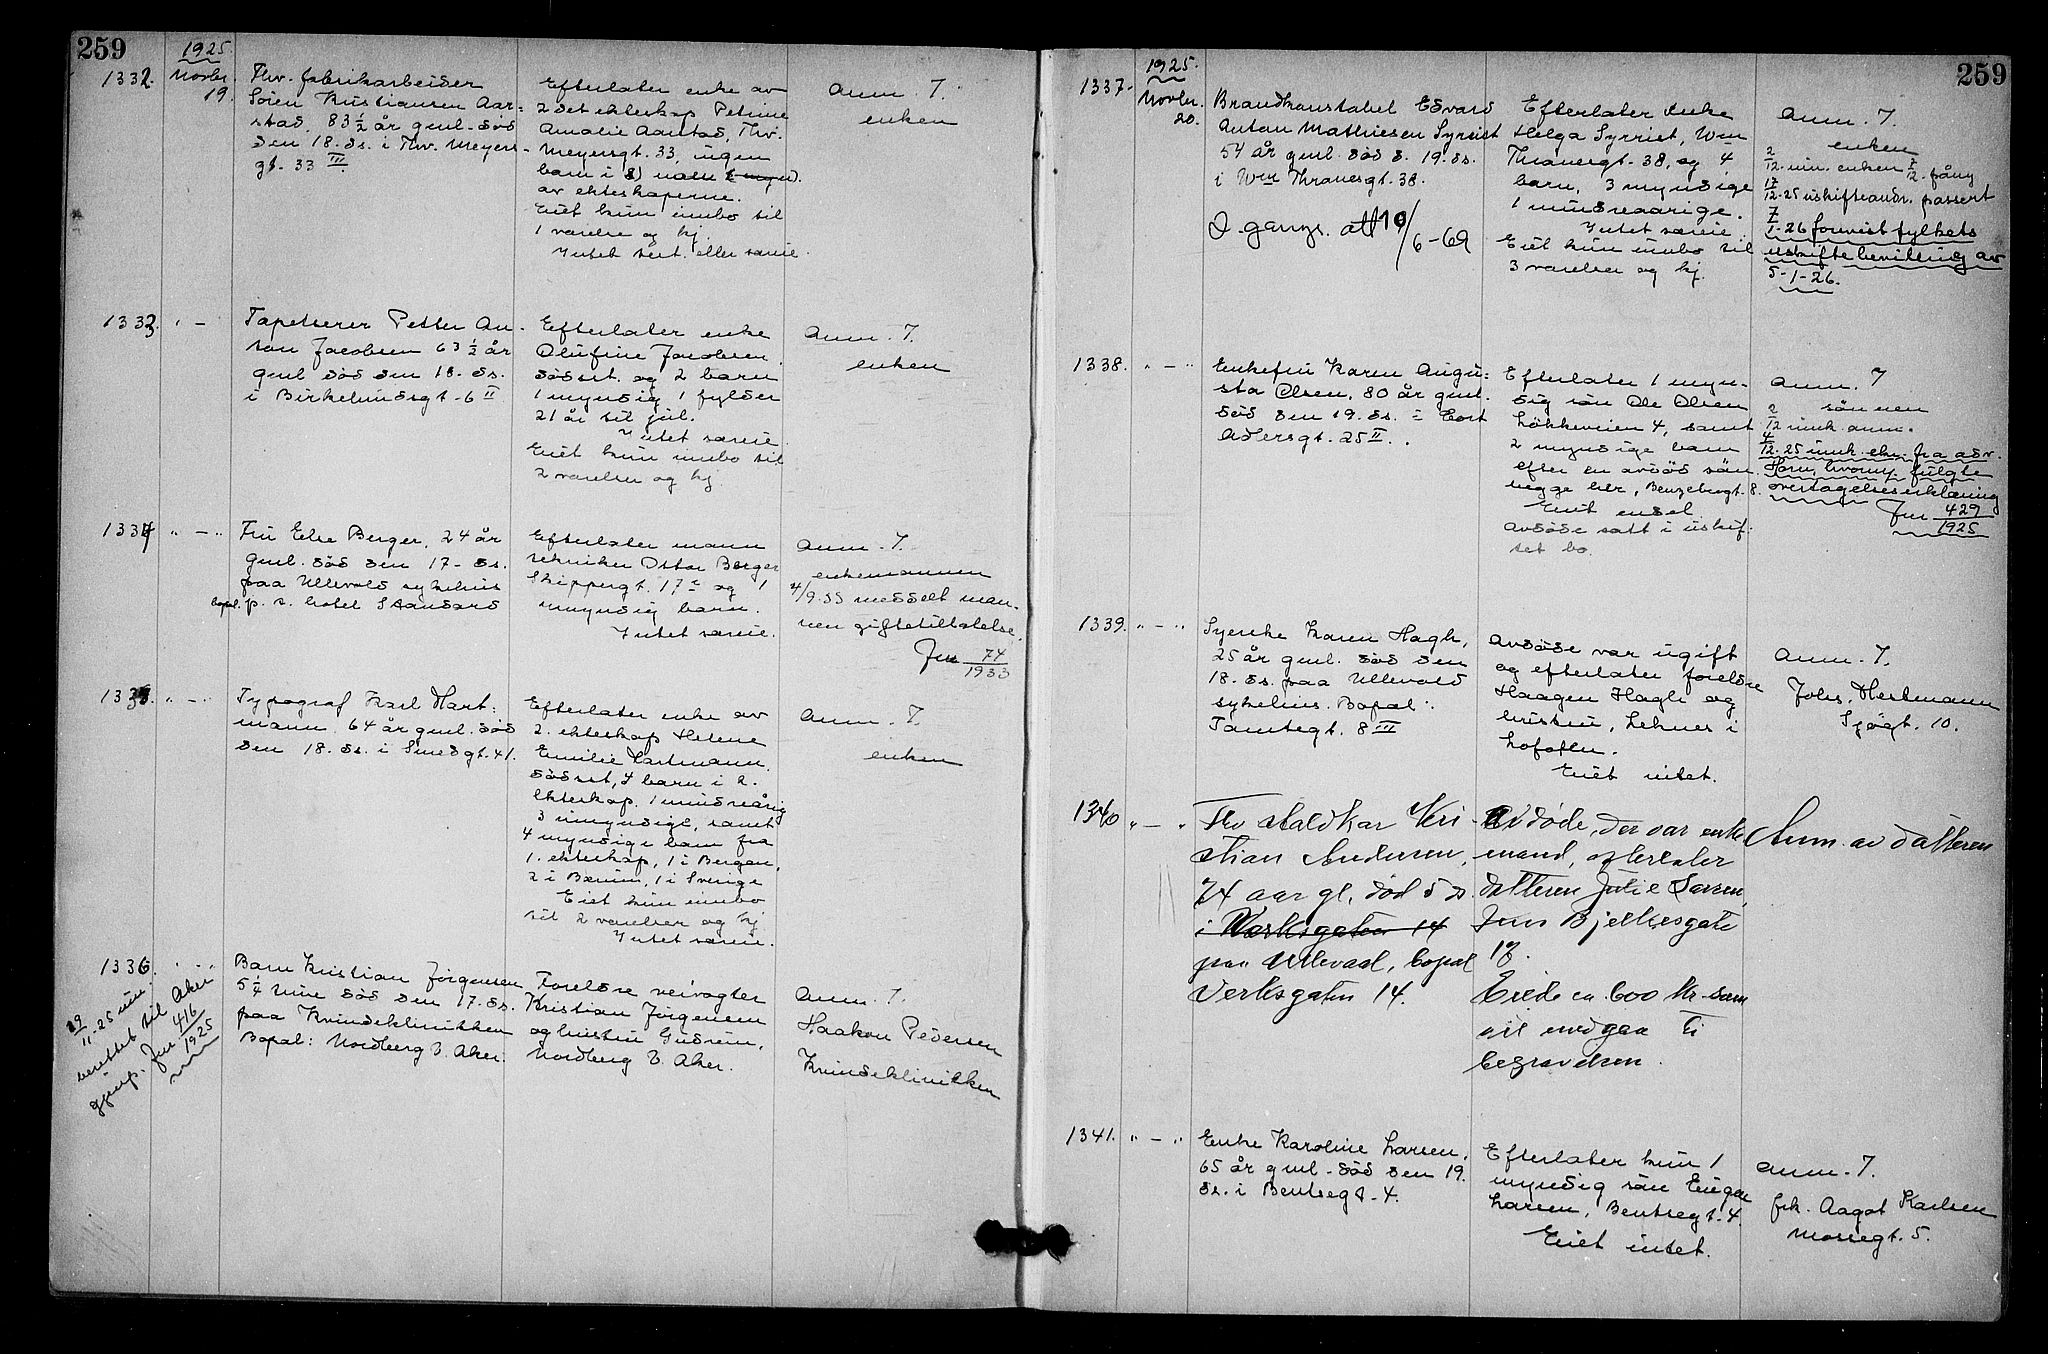 259
1925.
1332.
Novbr.
19.
Fhv. fabrikarbeider
Søren Kristiansen Aar-
stad, 83 1/2 år gml. død
den 18. ds. i Thv. Meyers-
gt. 33 III.
Efterlater enke av
2 det ekteskap Petrine
Amalie Aarstad, Thv.
Meyersgt. 33, ingen
barn i
av ekteskaperne.
Eiet kun innbo til
1 værelse og kj.
Intet test. eller særeie.
Anm. 7.
enken
1333. " —
Tapetserer Petter An-
ton Jacobsen 63 1/2 år
gml død den 18. ds.
i Birkelundsgt. 6 II
Efterlater enke
Olufine Jacobsen
dødsst. og 2 barn
1 myndig 1 fylder
21 år til jul.
Intet særeie.
Eiet kun innbo til
2 værelser og kj.
Anm. 7.
enken
1334 " — "
Fru Else Berger, 24 år
gml. død den 17. ds.
paa Ullevold sykehus
bopel. p. t. hotel Standard
Efterlater mann
tekniker Ottar Berger
Skippergt. 17 c og 1
umyndig barn.
Intet særeie.
Anm. 7.
enkemannen
4/9.33 meddelt man-
nen giftetillatelse.
Jnr 74/1933
1335. " — "
Typograf Karl Hart-
mann. 64 år gml. død
den 18. ds. i Smedgt. 41.
Efterlater enke av
2. ekteskap Helene
Emilie Hartmann.
dødsst, 4 barn i 2.
ekteskap. 1 mindreårig
3 umyndige, samt
4 myndige barn fra
1. ekteskap, 1 i Bergen,
2 i Bærum, 1 i Sverige
Eiet kun innbo
til 2 værelser og kj.
Intet særeie.
Anm. 7.
enken
1336. " — "
29/11-25 inn.
berettet til Aker
gjenp. Jnr 416/1925
Barn Kristian Jörgensen
5 1/4 time död den 17. ds.
paa Kvindeklinikken
Bopel: Nordberg V. Aker.
Foreldre veivogter
Kristian Jörgensen
og hustru Gudrun,
Nordberg V. Aker.
Anm. 7.
Haakon Pedersen
Kvindeklinikken
259
1925.
1337.
Novbr.
20.
Brandkonstabel Edvard
Anton Mathiesen Syrrist
54 år gml. død d. 19. ds.
i Wm Thranesgt. 38.
Q. gangs. att 10/6-69
Efterlater enke
Helga Syrrist, Wm
Thranesgt. 38, og 4
barn, 3 myndige
1 mindreaarige.
Intet særeie.
Eiet kun innbo til
3 værelser og kj.
Anm. 7.
enken
2/12. inn. enken 7/12. påny
17/12-25 uskifteandr. passert
7/1-26 forevist fylkets
uskiftebevilling av
5-1-26.
1338. " — "
Enkefru Karen Augu-
sta Olsen, 80 år gml.
død den 19. ds. i Cort
Adlersgt. 25 II.
Efterlater 1 myn-
dig sön Ole Olsen
Lökkeveien 4, samt
2 myndige barn
efter en avdöd sön.
begge her, Benzebrogt. 8.
Eiet endel
avdøde satt i uskif-
tet bo.
Anm. 7
sönnen
2/12 innk. anm.
4/12. 25 innk. ekv. fra adv.
Horn, hvorny. fulgte
overtagelseserklæring
Jnr 429/1925
1339. " — "
Syerske Karen Hagle,
25 år gml. død den
18. ds. paa Ullevold
sykehus. Bopel:
Tomtegt. 8 III
Avdøde var ugift
og efterlater foreldre
Haagen Hagle og
hustru, Leknes i
Lofoten.
Eiet intet.
Anm. 7.
Johs. Hertmann
Sjøgt. 10.
1340 " — "
Fhv Kri-
stian Andersen,
74 aar gl, død 5 ds
i Verksgaten 14
paa Ullevaal, bopal
Verksgaten 14.
Avdøde, der var enke
mand, efterlater
datteren Julie Larsen,
Jens Bjelkesgate
17.
Eiede ca. 600 Kr som
vil medgaa til
begravelsen.
Anm. av datteren
1341. " — "
Enke Karoline Larsen,
65 år gml. død den 19.
ds. i Bentsegt. 4.
Efterlater kun 1
myndig sön Eugen
Larsen, Bentsegt. 4
Eiet intet.
Anm. 7.
frk. Aagot Karlsen
Mossegt. 5.